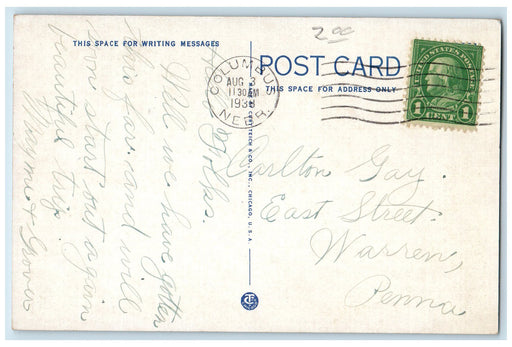 2.00
THIS SPACE FOR WRITING MESSAGES
POST CARD
THIS SPACE FOR ADDRESS ONLY
COLUMBUS
AUG 3
11 30 AM
1938
NEBR.
UNITED STATES POSTAGE
1 CENT 1
Folks.
Well we have gotten
this far and will
soon start out again
beautiful trip.
Mayme & Grover
Carlton Gay.
East Street.
Warren,
Penna
C.T. & CO., INC., CHICAGO, U.S.A.